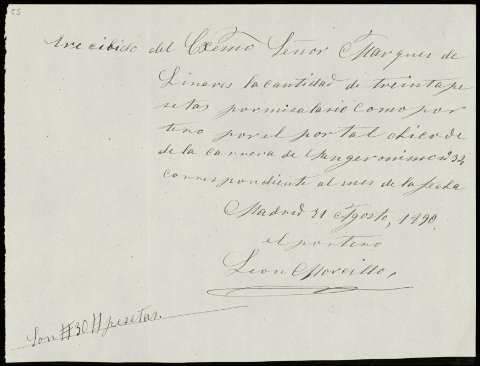 He recibido del Exemo Señor Marques de
Linares la cantidad de treinta pe
setas por mi salario como por
tero por el portal chico de
de la carrera de San geronimo nº 34
correspondiente al mes de la fecha
Madrid 31 Agosto, 1890.
el portero
Leon Morcillo,
Son # 30 # pesetas.